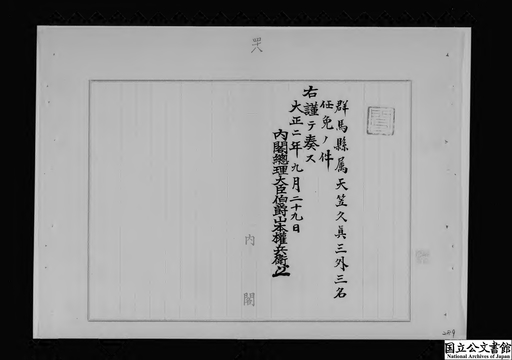 群馬縣属天笠久真三外三名
任免ノ件
右謹テ奏ス
大正二年九月二十九日
内閣總理大臣伯爵山本權兵衛
内閣
国立公文書館
National Archives of Japan